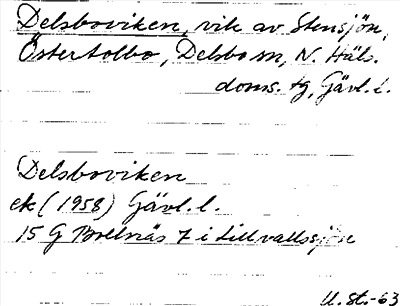 Delsboviken, vik av Stensjön,
Österbolbo, Delsbo sn, N. Häls.
doms. tg, Gävl. l.
Delsboviken
ek (1958) Gävl. l.
15 G Brelnäs 7 i Lillvallssjön
U. St. -63